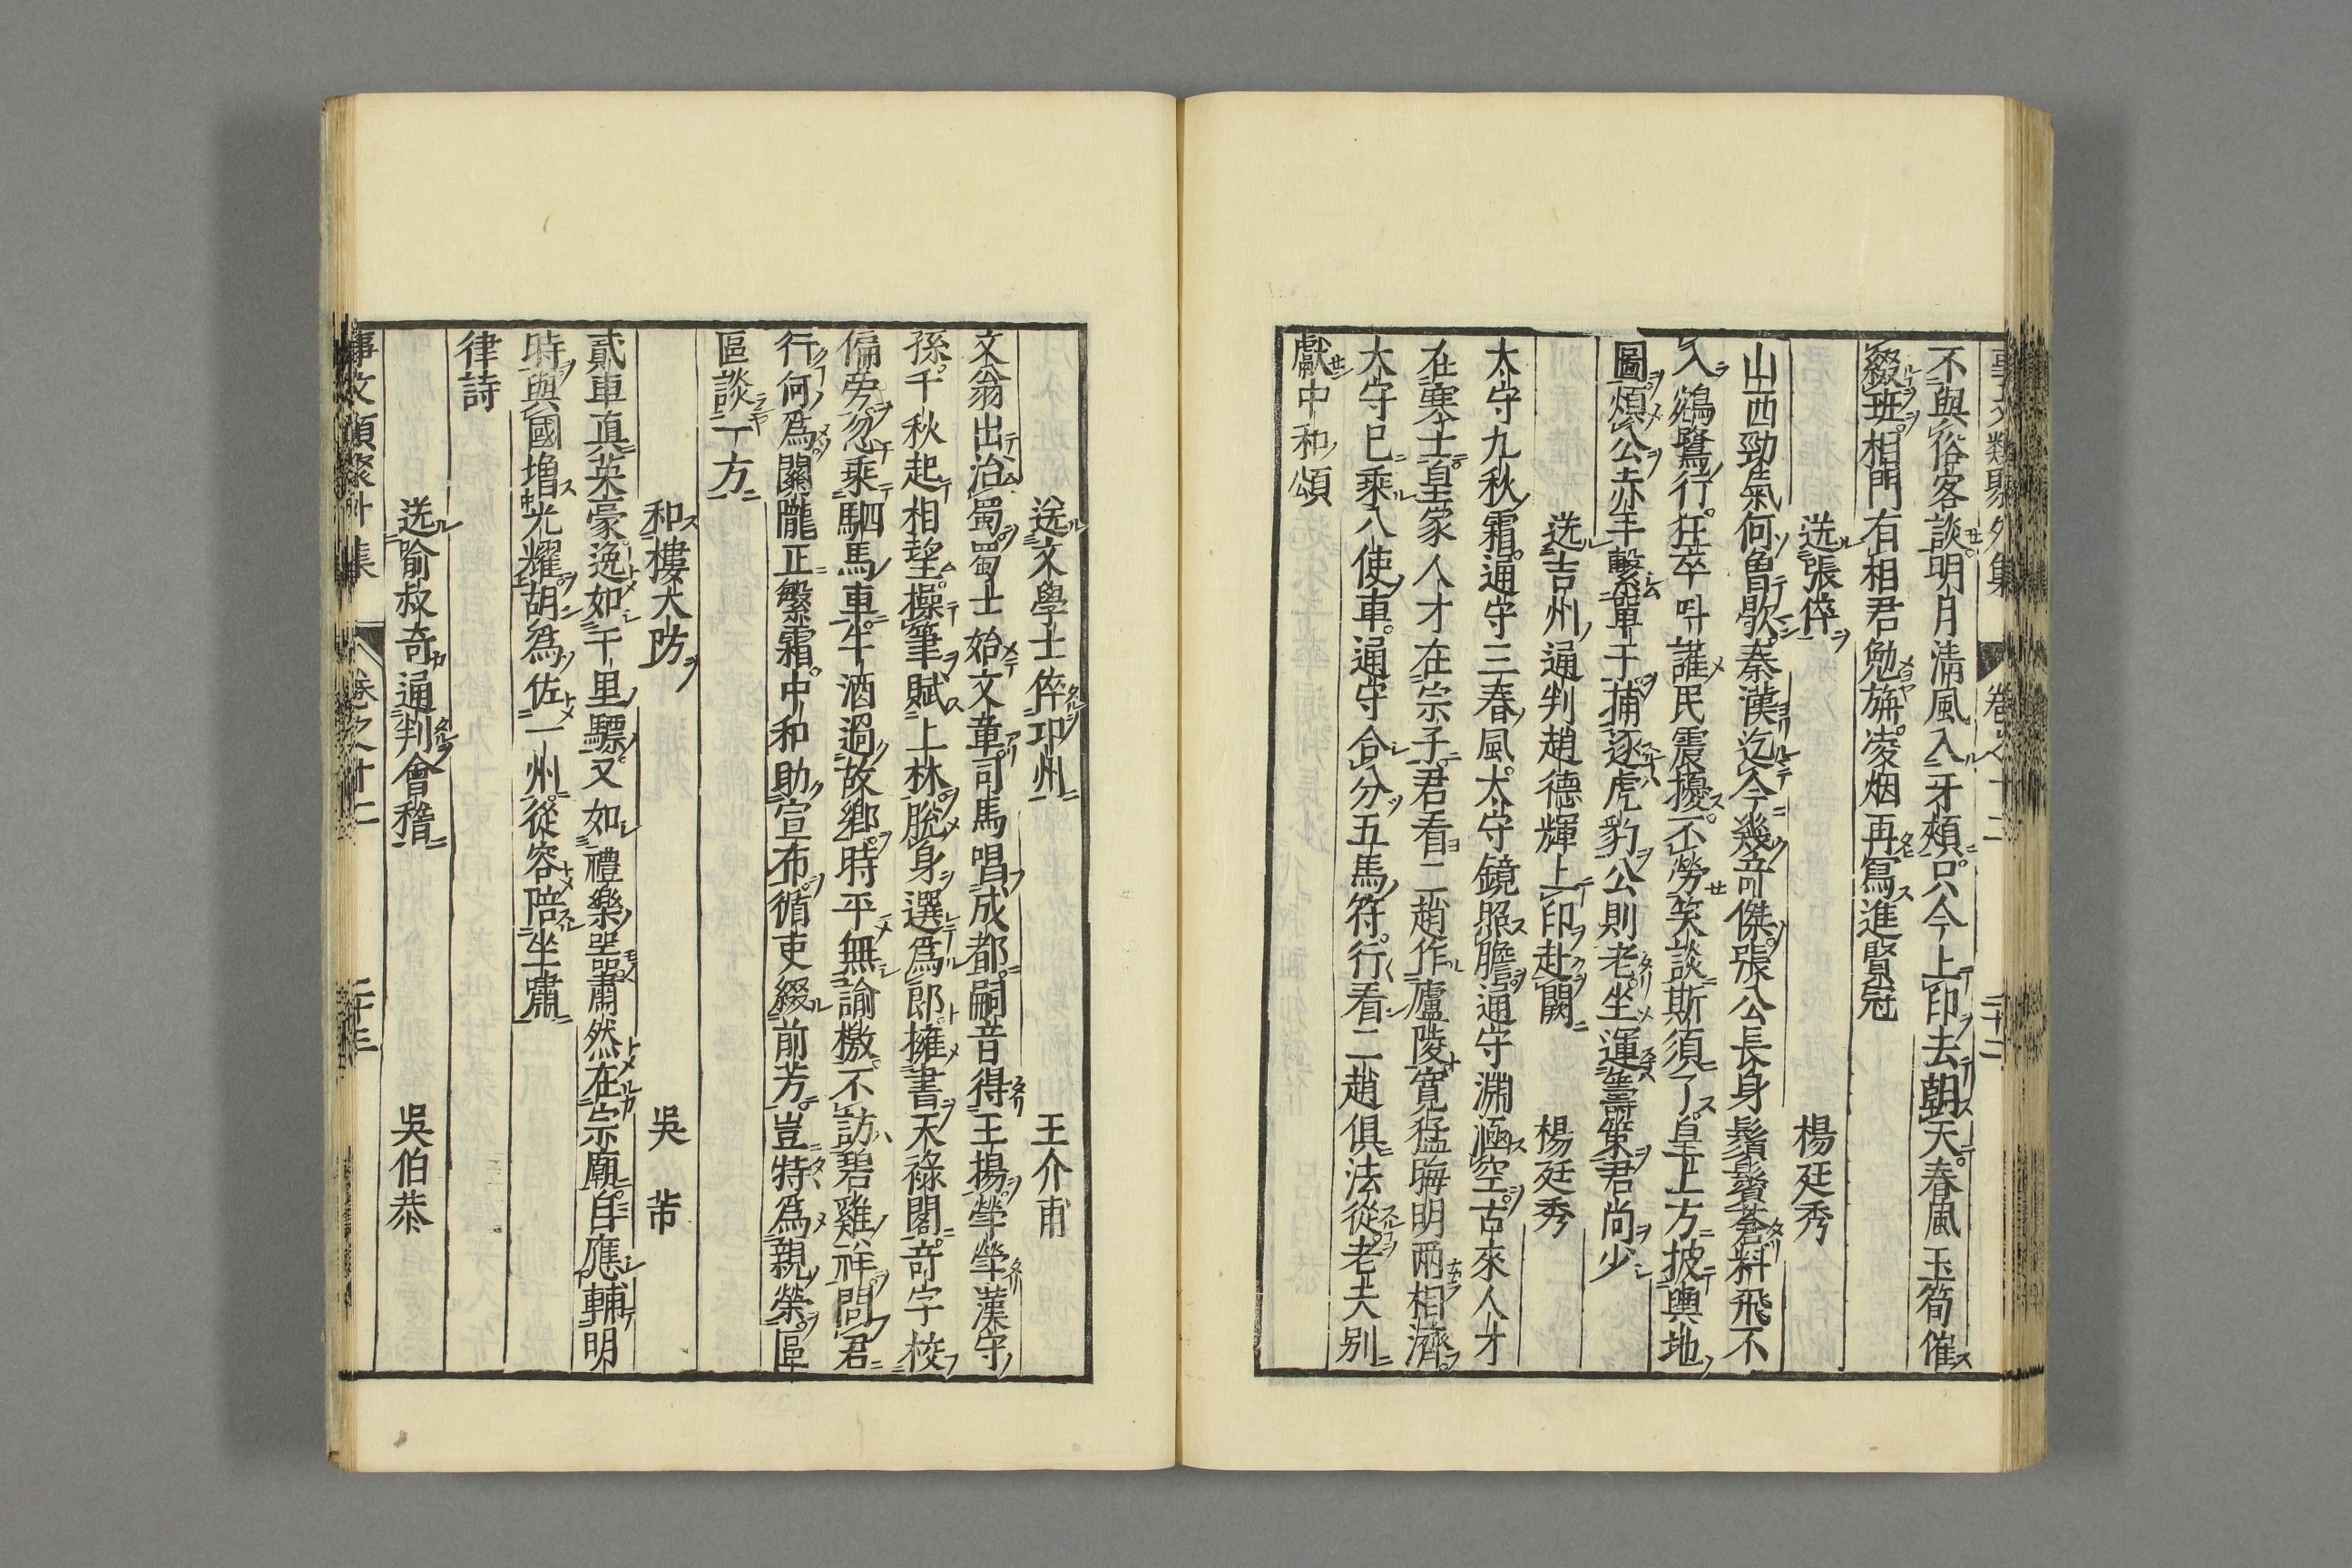 事文類聚外集　卷之十二　二十二
不與俗客談明月清風入牙頰只今上印去朝天春風玉筍催
綴班相門有相君勉旃凌烟再寫進賢冠
送張倅　楊廷秀
山西勁氣何曾歇秦漢迄今幾竒傑張公長身鬚鬢蒼料飛不
入鵷鷺行狂卒呌讙民震擾不勞笑談斯須了皇上方披輿地
圖煩公赤手繫單于捕逐虎豹公則老坐運籌策君尚少
送吉州通判趙德輝上印赴闕　楊廷秀
太守九秋霜通守三春風太守鏡照膽通守淵涵空古來人才
在塞士皇家人才在宗子君看二趙作廬陵寛猛晦明兩相濟
太守已乘八使車通守合分五馬符行看二趙俱法從老夫别
獻中和頌
送文學士倅邛州　王介甫
文翁出治蜀蜀士始文章司馬唱成都嗣音得王揚犖犖漢守
孫千秋起相望操筆賦上林脫身選爲郎擁書天祿閣奇字校
偏旁忽乘駟馬車牛酒過故鄉時平無諭檄不訪碧雞祥問君
行何爲關隴正繁霜中和助宣布循吏綴前芳豈特爲親榮區
區談一方
和樓大防　吳芾
貳車真英豪逸如千里驃又如禮樂噐肅然在宗廟自應輔明
時與國増光耀胡爲佐一州從容陪坐嘯
律詩
送喻叔奇通判會稽　吳伯恭
事文類聚外集　卷之十二　二十三